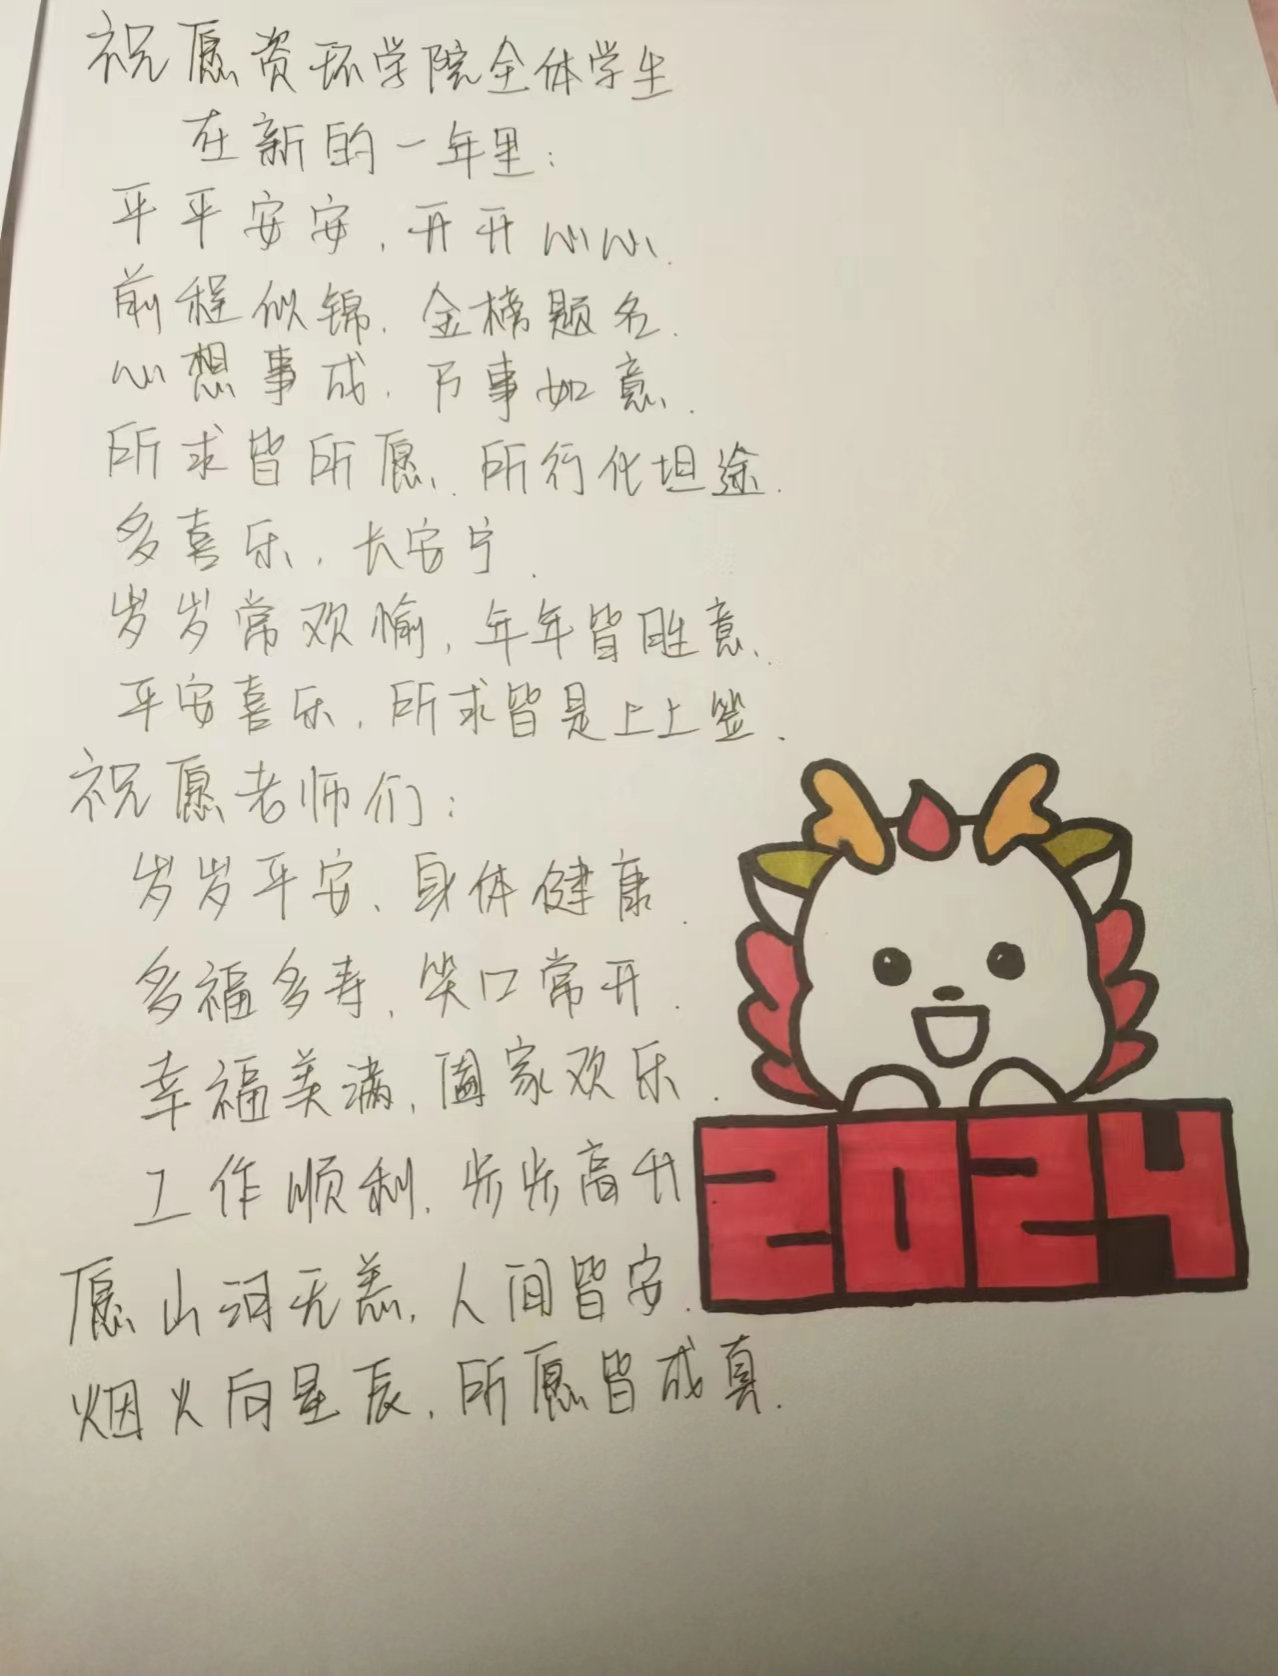 祝愿资环学院全体学生
在新的一年里：
平平安安，开开心心.
前程似锦，金榜题名.
心想事成，万事如意.
所求皆所愿，所行化坦途.
多喜乐，长安宁.
岁岁常欢愉，年年皆胜意.
平安喜乐，所求皆是上上签.
祝愿老师们：
岁岁平安、身体健康.
多福多寿，笑口常开.
幸福美满，阖家欢乐.
工作顺利，步步高升
愿山河无恙，人间皆安.
烟火向星辰，所愿皆成真.
2024